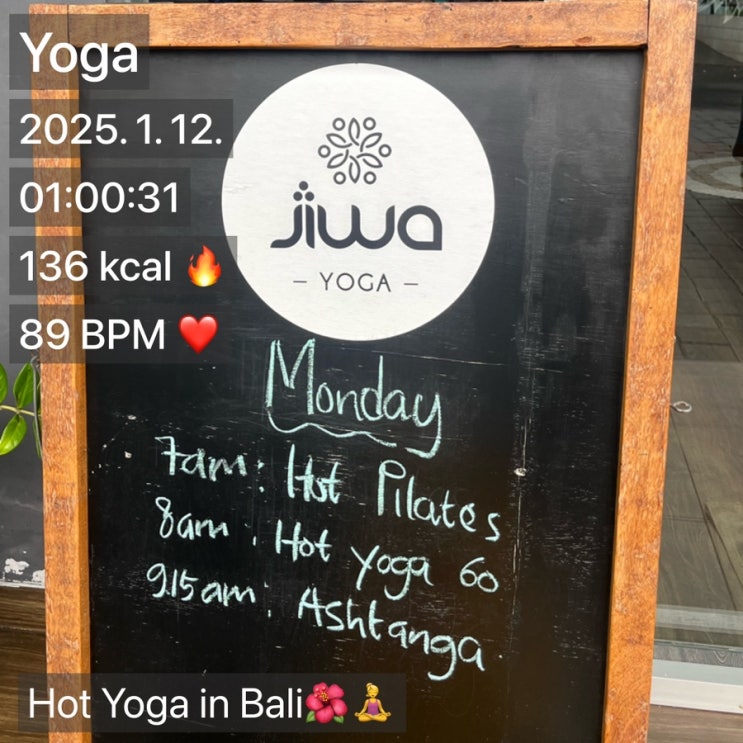 Yoga
2025. 1. 12.
01:00:31
136 kcal 🔥
89 BPM ❤️
jiwa
– YOGA –
Monday
7am: Hot Pilates
8am: Hot Yoga 60
9.15am: Ashtanga
Hot Yoga in Bali🌺🧘‍♀️